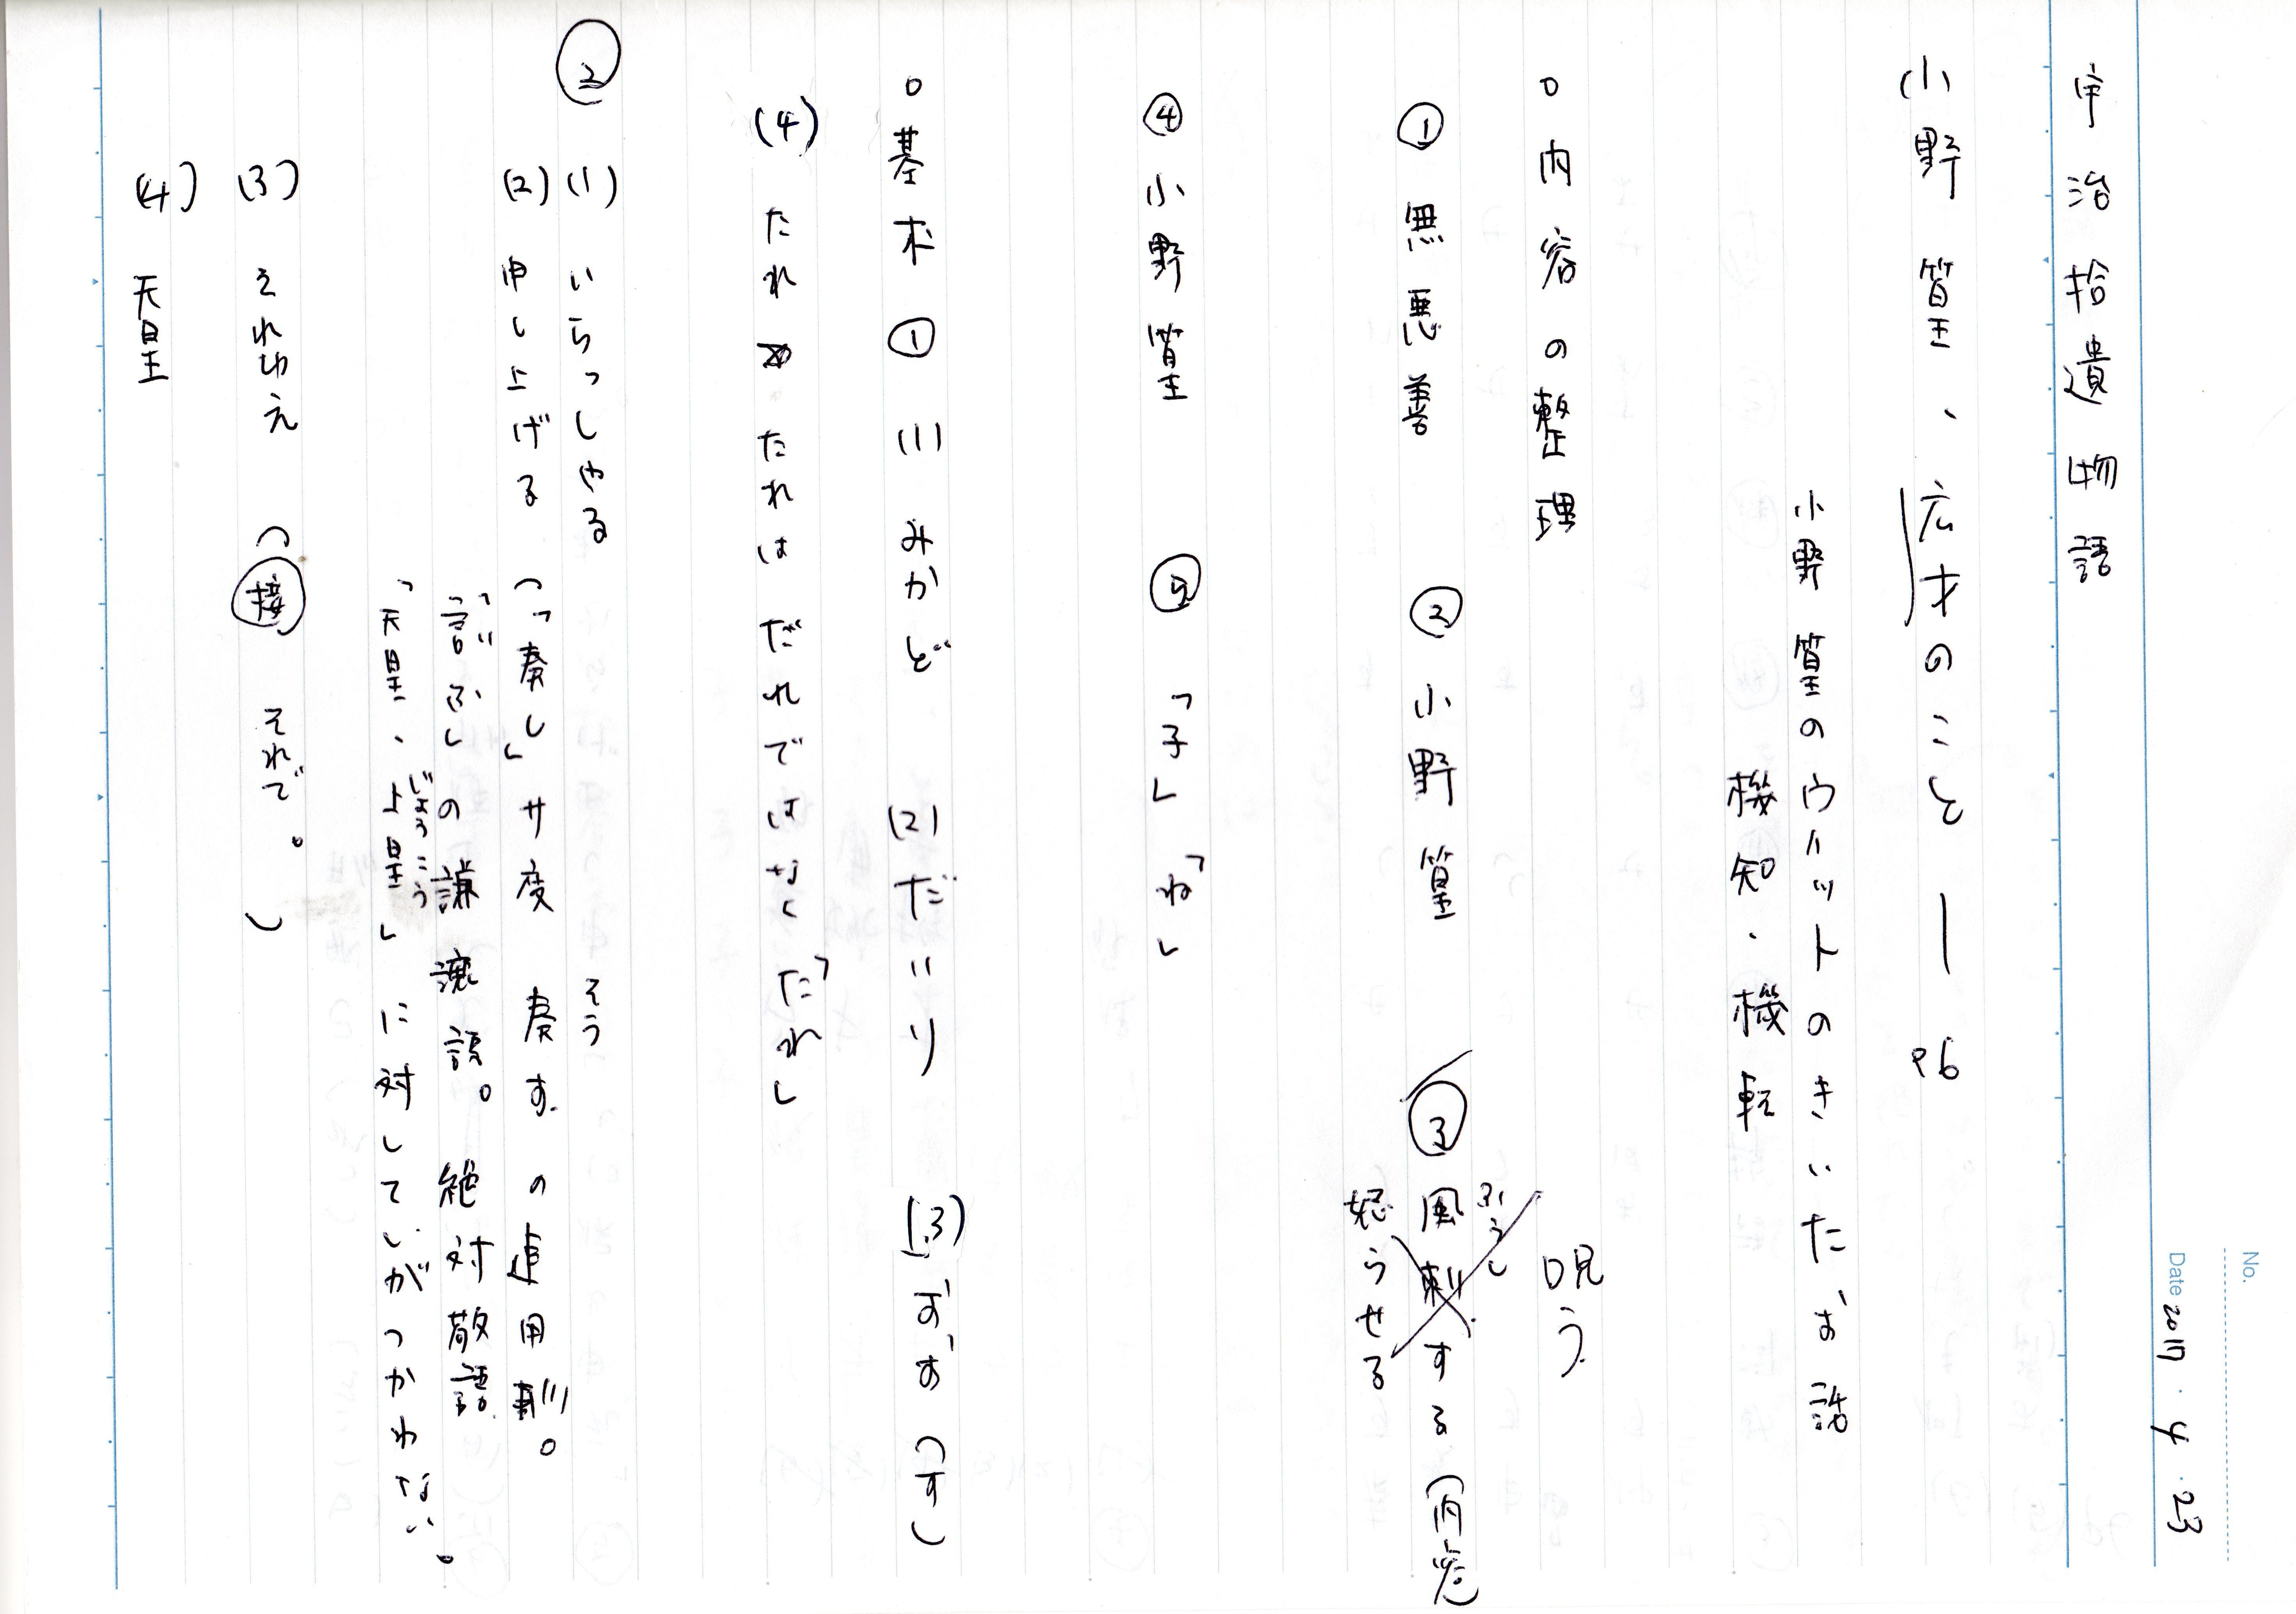 No.
Date 2017・4・23
宇治拾遺物語
小野篁、広才のこと ― P6
小野篁のウィットのきいたお話
機知・機転
○内容の整理
① 無悪善 ② 小野篁 ③ 風刺する(内容)
ふうし
呪う
怒らせる
④ 小野篁 ⑤ 「子」「ね」
○基本 ① (1) みかど (2) だいり (3) ず ず (す)
(4) たれ たれは だれではなく「たれ」
② (1) いらっしゃる
(2) 申し上げる (「奏し」サ変 奏す の連用形。
そう
「言ふ」の謙譲語。 絶対敬語
い
「天皇、上皇」に対してしかつかわない。
じょうこう
(3) それゆえ (接 それで。)
(4) 天皇